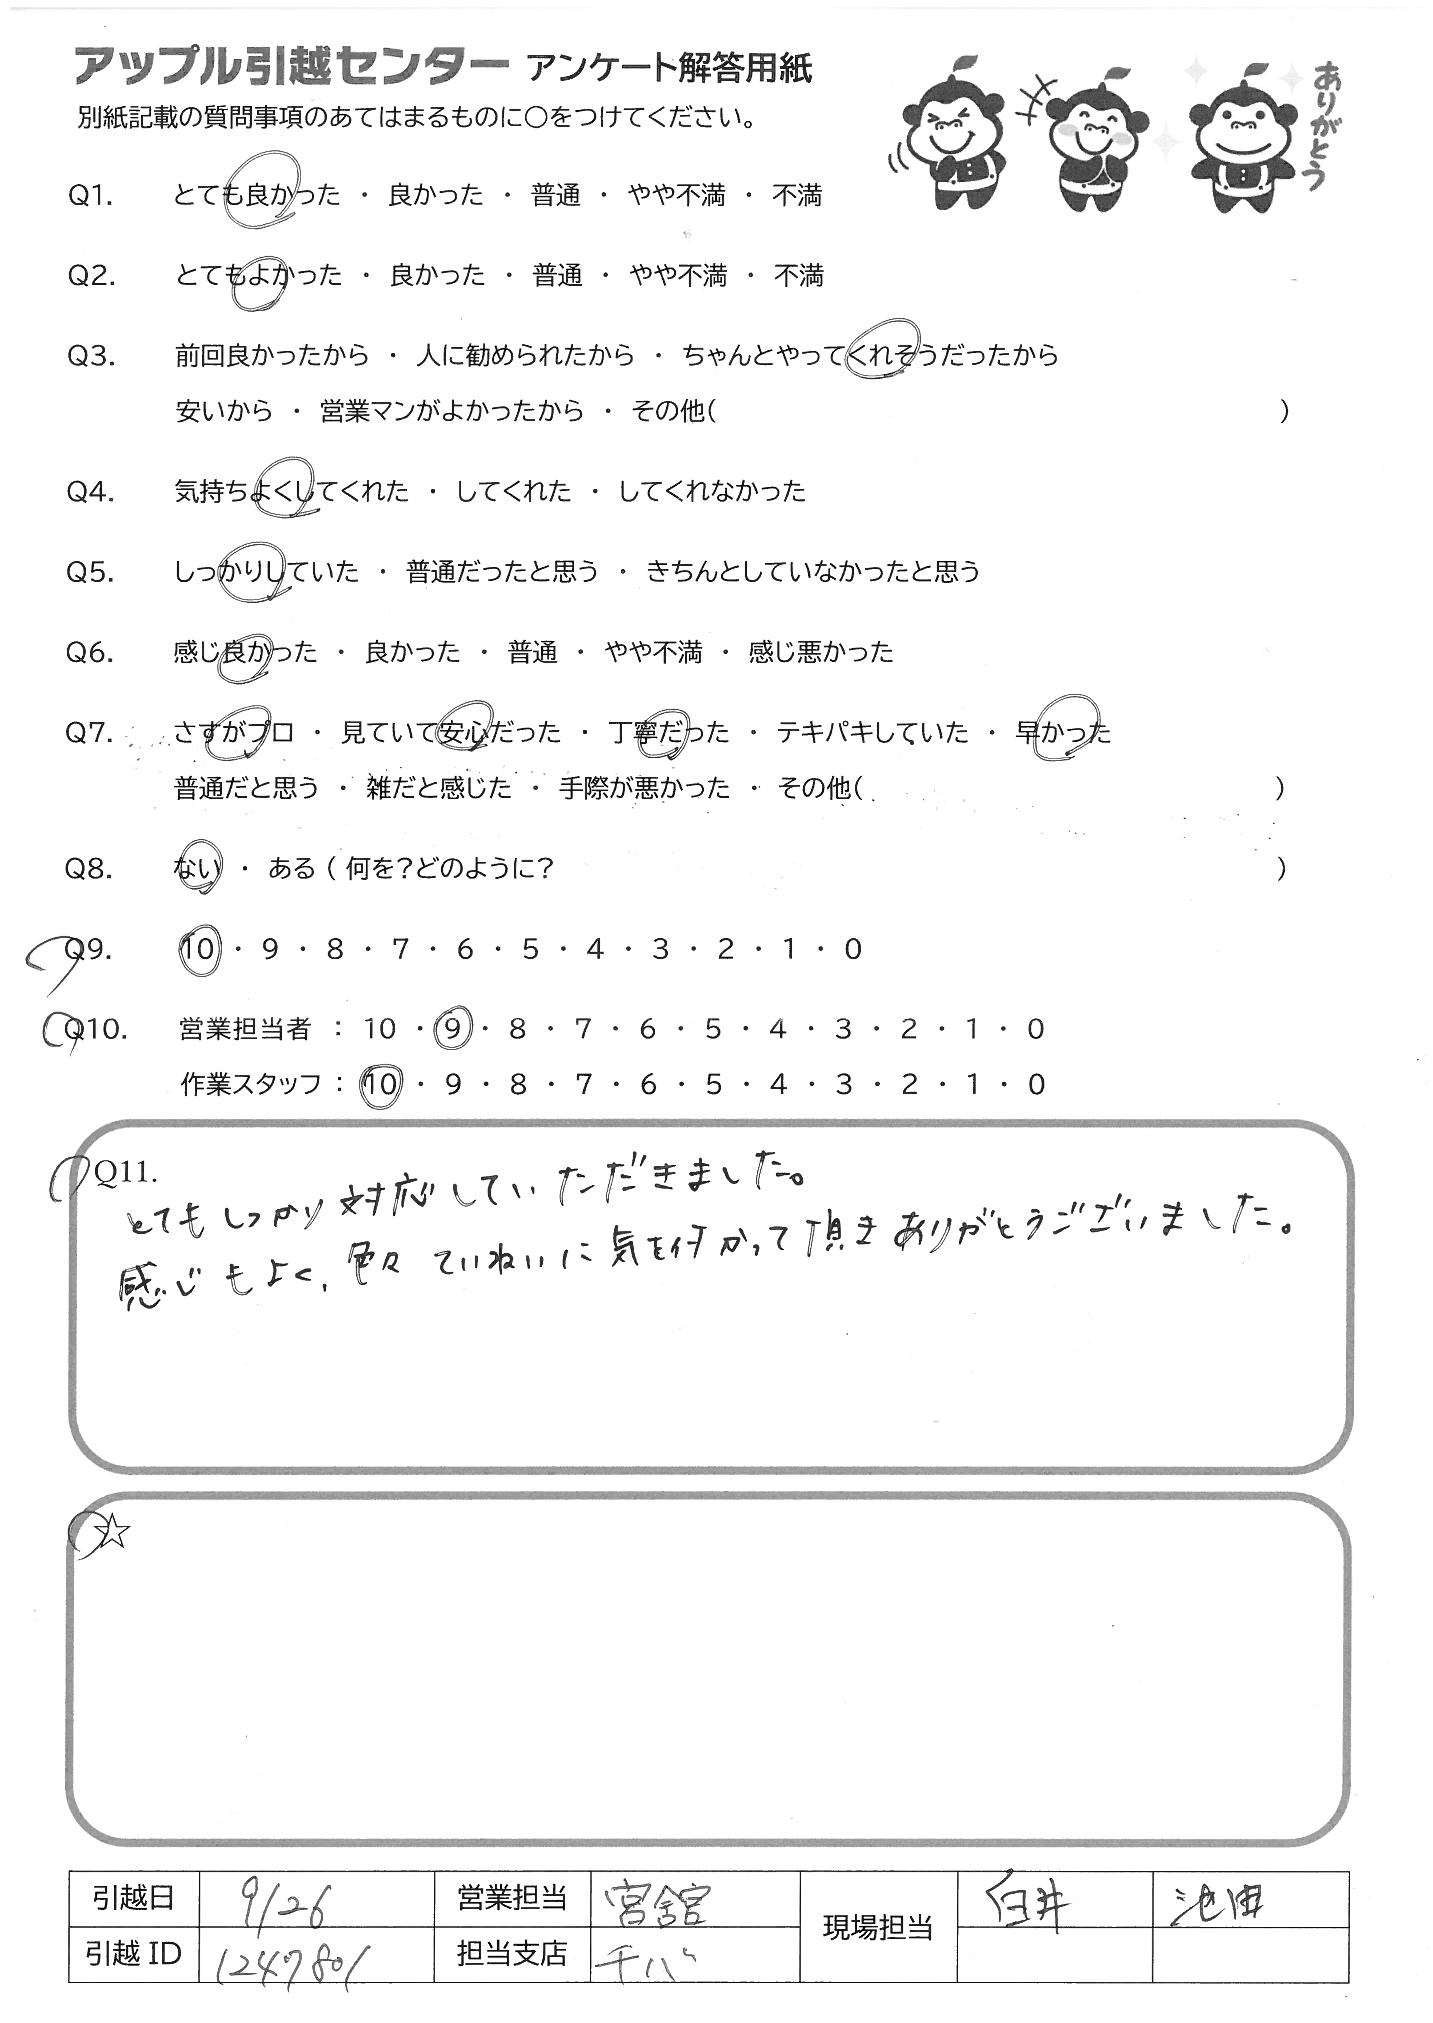 アップル引越センター アンケート解答用紙
ありがとう
別紙記載の質問事項のあてはまるものに○をつけてください。
Q1. とても良かった ・ 良かった ・ 普通 ・ やや不満 ・ 不満
Q2. とてもよかった ・ 良かった ・ 普通 ・ やや不満 ・ 不満
Q3. 前回良かったから ・ 人に勧められたから ・ ちゃんとやってくれそうだったから
安いから ・ 営業マンがよかったから ・ その他( )
Q4. 気持ちよくしてくれた ・ してくれた ・ してくれなかった
Q5. しっかりしていた ・ 普通だったと思う ・ きちんとしていなかったと思う
Q6. 感じ良かった ・ 良かった ・ 普通 ・ やや不満 ・ 感じ悪かった
Q7. さすがプロ ・ 見ていて安心だった ・ 丁寧だった ・ テキパキしていた ・ 早かった
普通だと思う ・ 雑だと感じた ・ 手際が悪かった ・ その他( )
Q8. ない ・ ある ( 何を?どのように? )
Q9. 10 ・ 9 ・ 8 ・ 7 ・ 6 ・ 5 ・ 4 ・ 3 ・ 2 ・ 1 ・ 0
Q10. 営業担当者 : 10 ・ 9 ・ 8 ・ 7 ・ 6 ・ 5 ・ 4 ・ 3 ・ 2 ・ 1 ・ 0
作業スタッフ : 10 ・ 9 ・ 8 ・ 7 ・ 6 ・ 5 ・ 4 ・ 3 ・ 2 ・ 1 ・ 0
Q11.
とてもしっかり対応していただきました。
感じもよく、色々ていねいに気を付かって頂きありがとうございました。
☆
引越日 9/26 営業担当 宮舘 現場担当 臼井 池田
引越 ID 1247801 担当支店 千バ